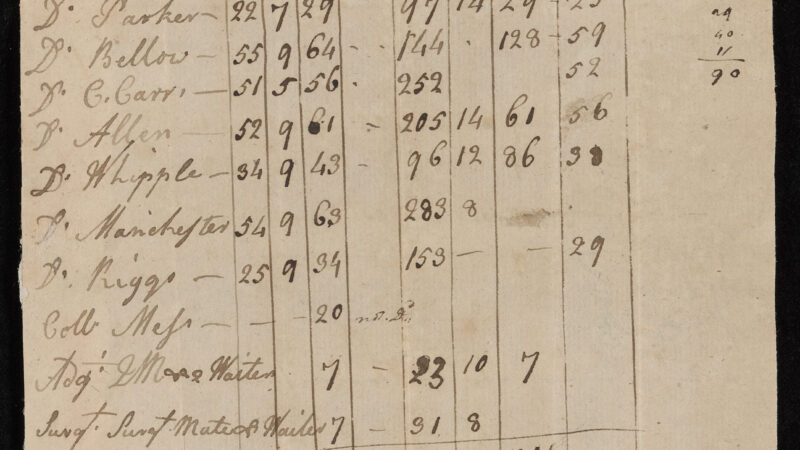 Do. Parker — 22 7 29 97 14 29 — 23
Do. Bellow — 55 9 64 - - 144 . 128 — 59
Do. C. Carr: — 51 5 56 . 252 52
Do. Allen — 52 9 61 - 205 14 61 56
Do. Whipple — 34 9 43 — 96 12 86 38
Do. Manchester 54 9 63 283 8
Do. Riggs — 25 9 34 153 — — 29
Coll. Mess — — — 20 no. Do.
Adjt. QM & 2 Waiters 7 — 23 10 7
Surgt. Surgt. Mate & Waiter 7 — 31 8
11
90